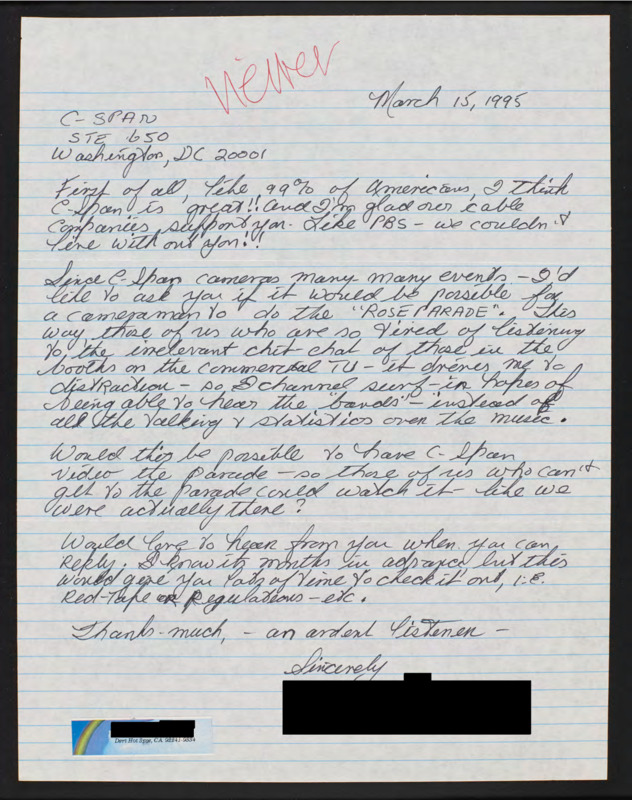 viewer
March 15, 1995
C-SPAN
STE 650
Washington, DC 20001
First of all, like 99% of Americans, I think
C-Span is great!! And I'm glad our cable
Companies support you. Like PBS - we couldn't
live without you!!
Since C-Span cameras many many events - I'd
like to ask you if it would be possible for
a cameraman to do the "ROSE PARADE". This
way those of us who are so tired of listening
to the irrelevant chit-chat of those in the
booths on the commercial TV - it drives me to
distraction - so I channel surf - in hopes of
being able to hear the "bands" - instead of
all the talking & statistics over the music.
Would this be possible to have C-Span
video the parade - so those of us who can't
get to the parade could watch it - like we
were actually there?
Would love to hear from you when you can
reply. I know it's months in advance but this
would give you lots of time to check it out, i.e.
Red-Tape or Regulations - etc.
Thanks-much, - an ardent listener -
Sincerely
Dsrt Hot Spgs, CA